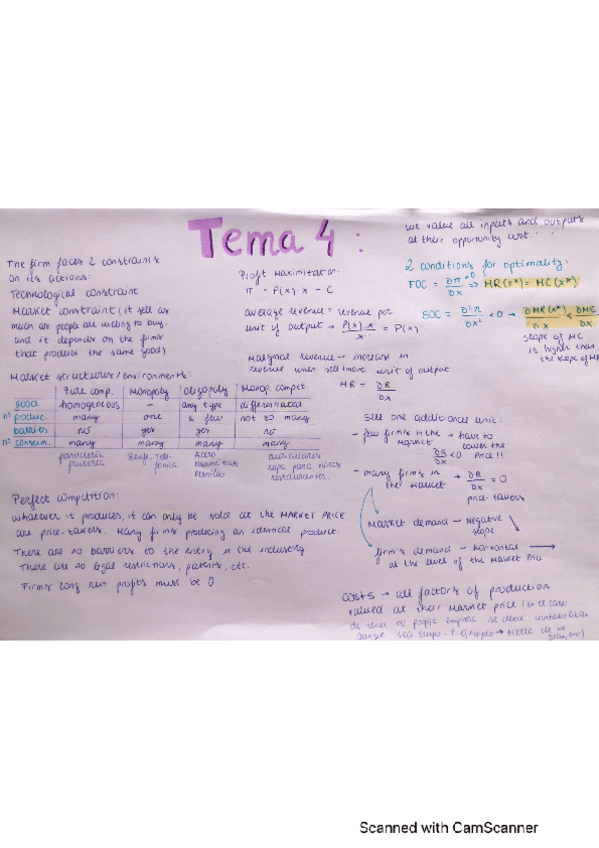 Tema 4:
The firm faces 2 constraints
on its actions:
Technological constraint
Market constraint (it sell as
much as people are willing to buy.
and it depends on the firms
that produce the same good)
Market structures/environments:
Pure comp. Monopoly Oligopoly Monop. compet.
good homogeneous - any type differentiated
nº produc. many one a few not so many
barriers no yes yes no
nº consum. many many many many
panadería Renfe, Tele- Acero auriculares
frutería fónica ropa para niños
Petróleo restaurantes.
Perfect competition:
whatever it produces, it can only be sold at the MARKET PRICE
are price-takers. Many firms producing an identical product.
There are no barriers to the entry in the industry
There are no legal restrictions, patents, etc.
Firms long run profits must be 0
Profit Maximitation:
π = P(x) · x - C
average revenue = revenue per
unit of output → P(x)·x / x = P(x)
Marginal revenue → increase in
revenue when sell more unit of output
MR = ∂R / ∂x
we value all inputs and outputs
at their opportunity cost.
2 conditions for optimality:
FOC = ∂π / ∂x = 0 ⇒ MR(x*) = MC(x*)
SOC = ∂²π / ∂x² < 0 → ∂MR(x*) / ∂x < ∂MC / ∂x
slope of MC
is higher than
the slope of MR
Sell one additional unit:
- few firms in the market → have to
lower the
price!!
∂R / ∂x < 0
- many firms in
the market → ∂R / ∂x = 0
price-takers
Market demand → negative
slope
firm's demand → horizontal →
at the level of the market price
costs → all factors of production
valued at their market price (en el caso
de tener tu propia empresa se debe contabilizar
aunque sea tuyo. P. ejemplo →
Scanned with CamScanner